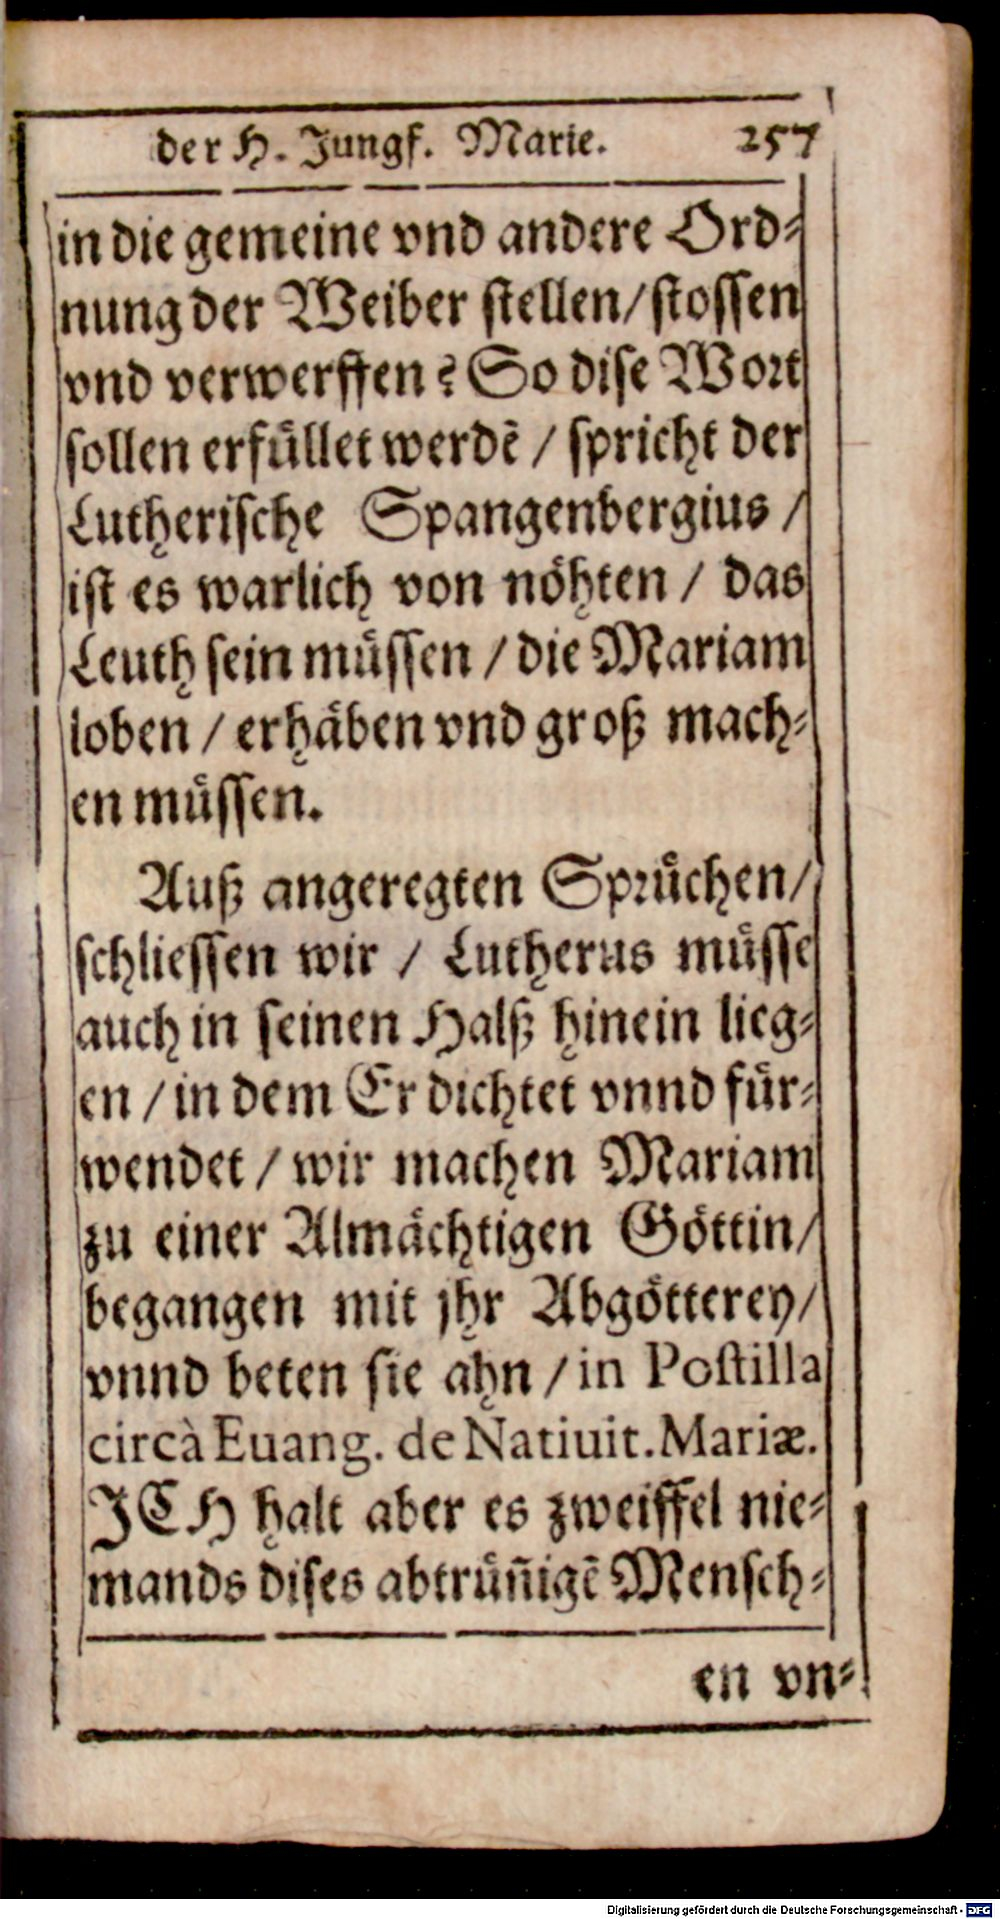 der H. Jungf. Marie. 257
in die gemeine vnd andere Ord⸗
nung der Weiber stellen/stossen
vnd verwerffen? So dise Wort
sollen erfüllet werdē / spricht der
Lutherische Spangenbergius /
ist es warlich von nöhten / das
Leuth sein müssen / die Mariam
loben / erhäben vnd groß mach⸗
en müssen.
Auß angeregten Sprüchen/
schliessen wir / Lutherus müsse
auch in seinen Halß hinein lieg⸗
en / in dem Er dichtet vnnd für⸗
wendet / wir machen Mariam
zu einer Almächtigen Göttin/
begangen mit jhr Abgötterey/
vnnd beten sie ahn / in Postilla
circà Euang. de Natiuit. Mariæ.
JCH halt aber es zweiffel nie⸗
mands dises abtrün̄igē Mensch⸗
en vn⸗
Digitalisierung gefördert durch die Deutsche Forschungsgemeinschaft - DFG